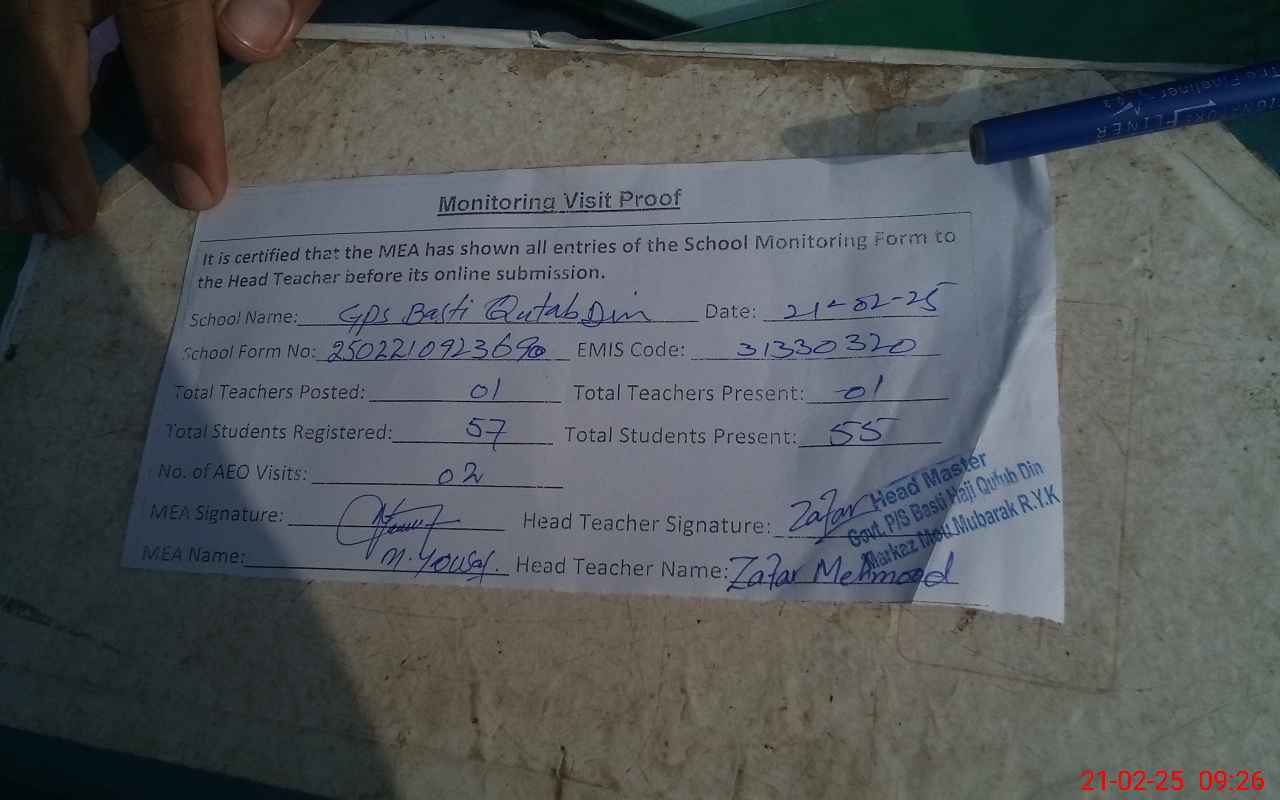 Monitoring Visit Proof
It is certified that the MEA has shown all entries of the School Monitoring Form to
the Head Teacher before its online submission.
School Name: GPS Basti Qutab Din Date: 21-02-25
School Form No: 2502210923690 EMIS Code: 31330320
Total Teachers Posted: 01 Total Teachers Present: 01
Total Students Registered: 57 Total Students Present: 55
No. of AEO Visits: 02
MEA Signature: Head Teacher Signature: Zafar
MEA Name: M. Yousaf. Head Teacher Name: Zafar Mehmood
Head Master
Govt. P/S Basti Haji Qutub Din
Markaz Mou Mubarak R.Y.K
FLINER
21-02-25 09:26